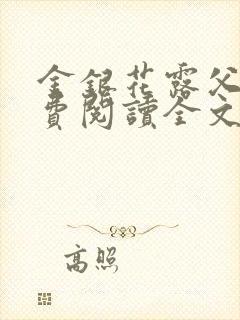 金銀花露父
費閱讀全文
高照